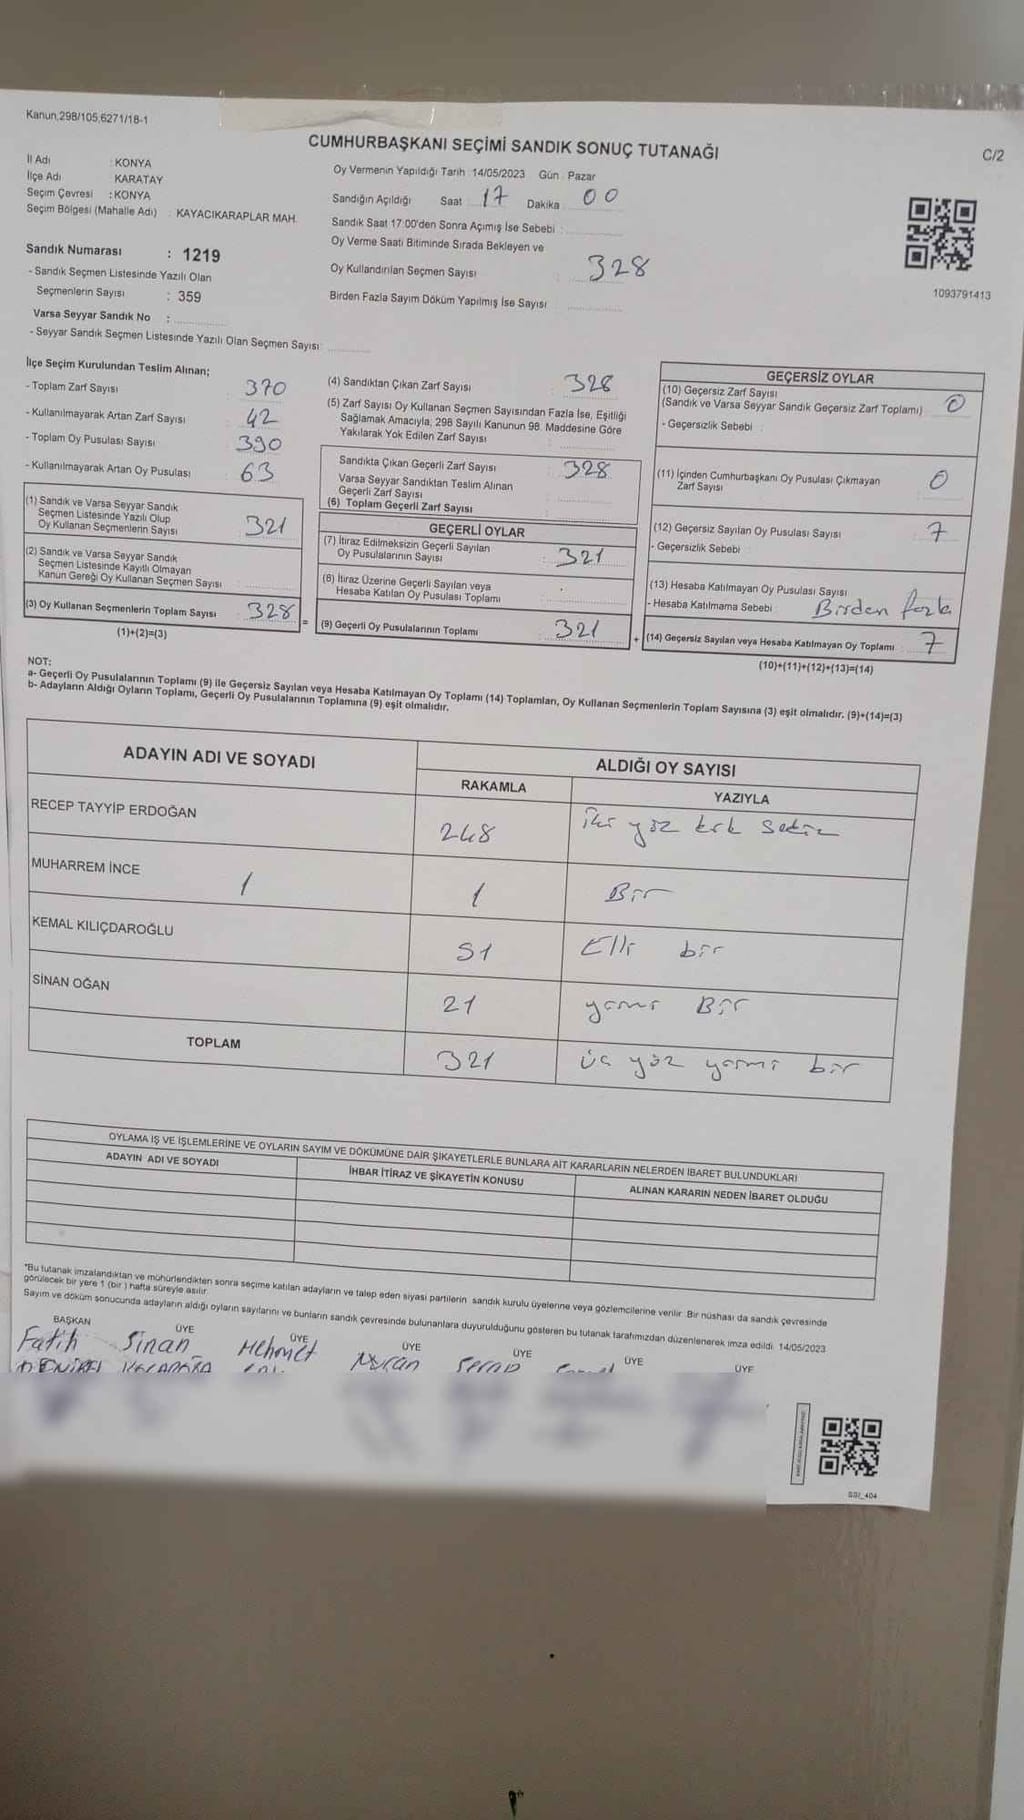 Kanun,298/105,6271/18-1
CUMHURBAŞKANI SEÇİMİ SANDIK SONUÇ TUTANAĞI
C/2
İl Adı : KONYA
İlçe Adı KARATAY
Seçim Çevresi : KONYA
Seçim Bölgesi (Mahalle Adı) : KAYACIKARAPLAR MAH.
Oy Vermenin Yapıldığı Tarih 14/05/2023 Gün : Pazar
Sandığın Açıldığı Saat 17 Dakika 00
Sandık Saat 17:00'den Sonra Açımış İse Sebebi :
Oy Verme Saati Bitiminde Sırada Bekleyen ve
Oy Kullandırılan Seçmen Sayısı : 328
Birden Fazla Sayım Döküm Yapılmış İse Sayısı
1093791413
Sandık Numarası : 1219
- Sandık Seçmen Listesinde Yazılı Olan
Seçmenlerin Sayısı : 359
Varsa Seyyar Sandık No :
- Seyyar Sandık Seçmen Listesinde Yazılı Olan Seçmen Sayısı:
İlçe Seçim Kurulundan Teslim Alınan;
- Toplam Zarf Sayısı 370
- Kullanılmayarak Artan Zarf Sayısı 42
- Toplam Oy Pusulası Sayısı 390
- Kullanılmayarak Artan Oy Pusulası 63
(1) Sandık ve Varsa Seyyar Sandık
Seçmen Listesinde Yazılı Olup
Oy Kullanan Seçmenlerin Sayısı 321
(2) Sandık ve Varsa Seyyar Sandık
Seçmen Listesinde Kayıtlı Olmayan
Kanun Gereği Oy Kullanan Seçmen Sayısı
(3) Oy Kullanan Seçmenlerin Toplam Sayısı 328
(1)+(2)=(3)
(4) Sandıktan Çıkan Zarf Sayısı 328
(5) Zarf Sayısı Oy Kullanan Seçmen Sayısından Fazla İse, Eşitliği
Sağlamak Amacıyla, 298 Sayılı Kanunun 98. Maddesine Göre
Yakılarak Yok Edilen Zarf Sayısı
Sandıkta Çıkan Geçerli Zarf Sayısı 328
Varsa Seyyar Sandıktan Teslim Alınan
Geçerli Zarf Sayısı
(6) Toplam Geçerli Zarf Sayısı
GEÇERLİ OYLAR
(7) İtiraz Edilmeksizin Geçerli Sayılan
Oy Pusulalarının Sayısı : 321
(8) İtiraz Üzerine Geçerli Sayılan veya
Hesaba Katılan Oy Pusulası Toplamı
= (9) Geçerli Oy Pusulalarının Toplamı 321 +
GEÇERSİZ OYLAR
(10) Geçersiz Zarf Sayısı
(Sandık ve Varsa Seyyar Sandık Geçersiz Zarf Toplamı) 0
- Geçersizlik Sebebi :
(11) İçinden Cumhurbaşkanı Oy Pusulası Çıkmayan
Zarf Sayısı 0
(12) Geçersiz Sayılan Oy Pusulası Sayısı 7
- Geçersizlik Sebebi :
(13) Hesaba Katılmayan Oy Pusulası Sayısı
- Hesaba Katılmama Sebebi : Birden fazla
(14) Geçersiz Sayılan veya Hesaba Katılmayan Oy Toplamı 7
(10)+(11)+(12)+(13)=(14)
NOT:
a- Geçerli Oy Pusulalarının Toplamı (9) ile Geçersiz Sayılan veya Hesaba Katılmayan Oy Toplamı (14) Toplamları, Oy Kullanan Seçmenlerin Toplam Sayısına (3) eşit olmalıdır. (9)+(14)=(3)
b- Adayların Aldığı Oyların Toplamı, Geçerli Oy Pusulalarının Toplamına (9) eşit olmalıdır.
ADAYIN ADI VE SOYADI
ALDIĞI OY SAYISI
RAKAMLA YAZIYLA
RECEP TAYYİP ERDOĞAN 248 iki yüz kırk sekiz
MUHARREM İNCE 1 1 Bir
KEMAL KILIÇDAROĞLU 51 Elli bir
SİNAN OĞAN 21 yirmi Bir
TOPLAM 321 üç yüz yirmi bir
OYLAMA İŞ VE İŞLEMLERİNE VE OYLARIN SAYIM VE DÖKÜMÜNE DAİR ŞİKAYETLERLE BUNLARA AİT KARARLARIN NELERDEN İBARET BULUNDUKLARI
ADAYIN ADI VE SOYADI İHBAR İTİRAZ VE ŞİKAYETİN KONUSU ALINAN KARARIN NEDEN İBARET OLDUĞU
*Bu tutanak imzalandıktan ve mühürlendikten sonra seçime katılan adayların ve talep eden siyasi partilerin sandık kurulu üyelerine veya gözlemcilerine verilir. Bir nüshası da sandık çevresinde
görülecek bir yere 1 (bir ) hafta süreyle asılır.
Sayım ve döküm sonucunda adayların aldığı oyların sayılarını ve bunların sandık çevresinde bulunanlara duyurulduğunu gösteren bu tutanak tarafımızdan düzenlenerek imza edildi. 14/05/2023
BAŞKAN ÜYE ÜYE ÜYE ÜYE ÜYE ÜYE
Fatih Sinan Mehmet Nuran Serap
SSI_404